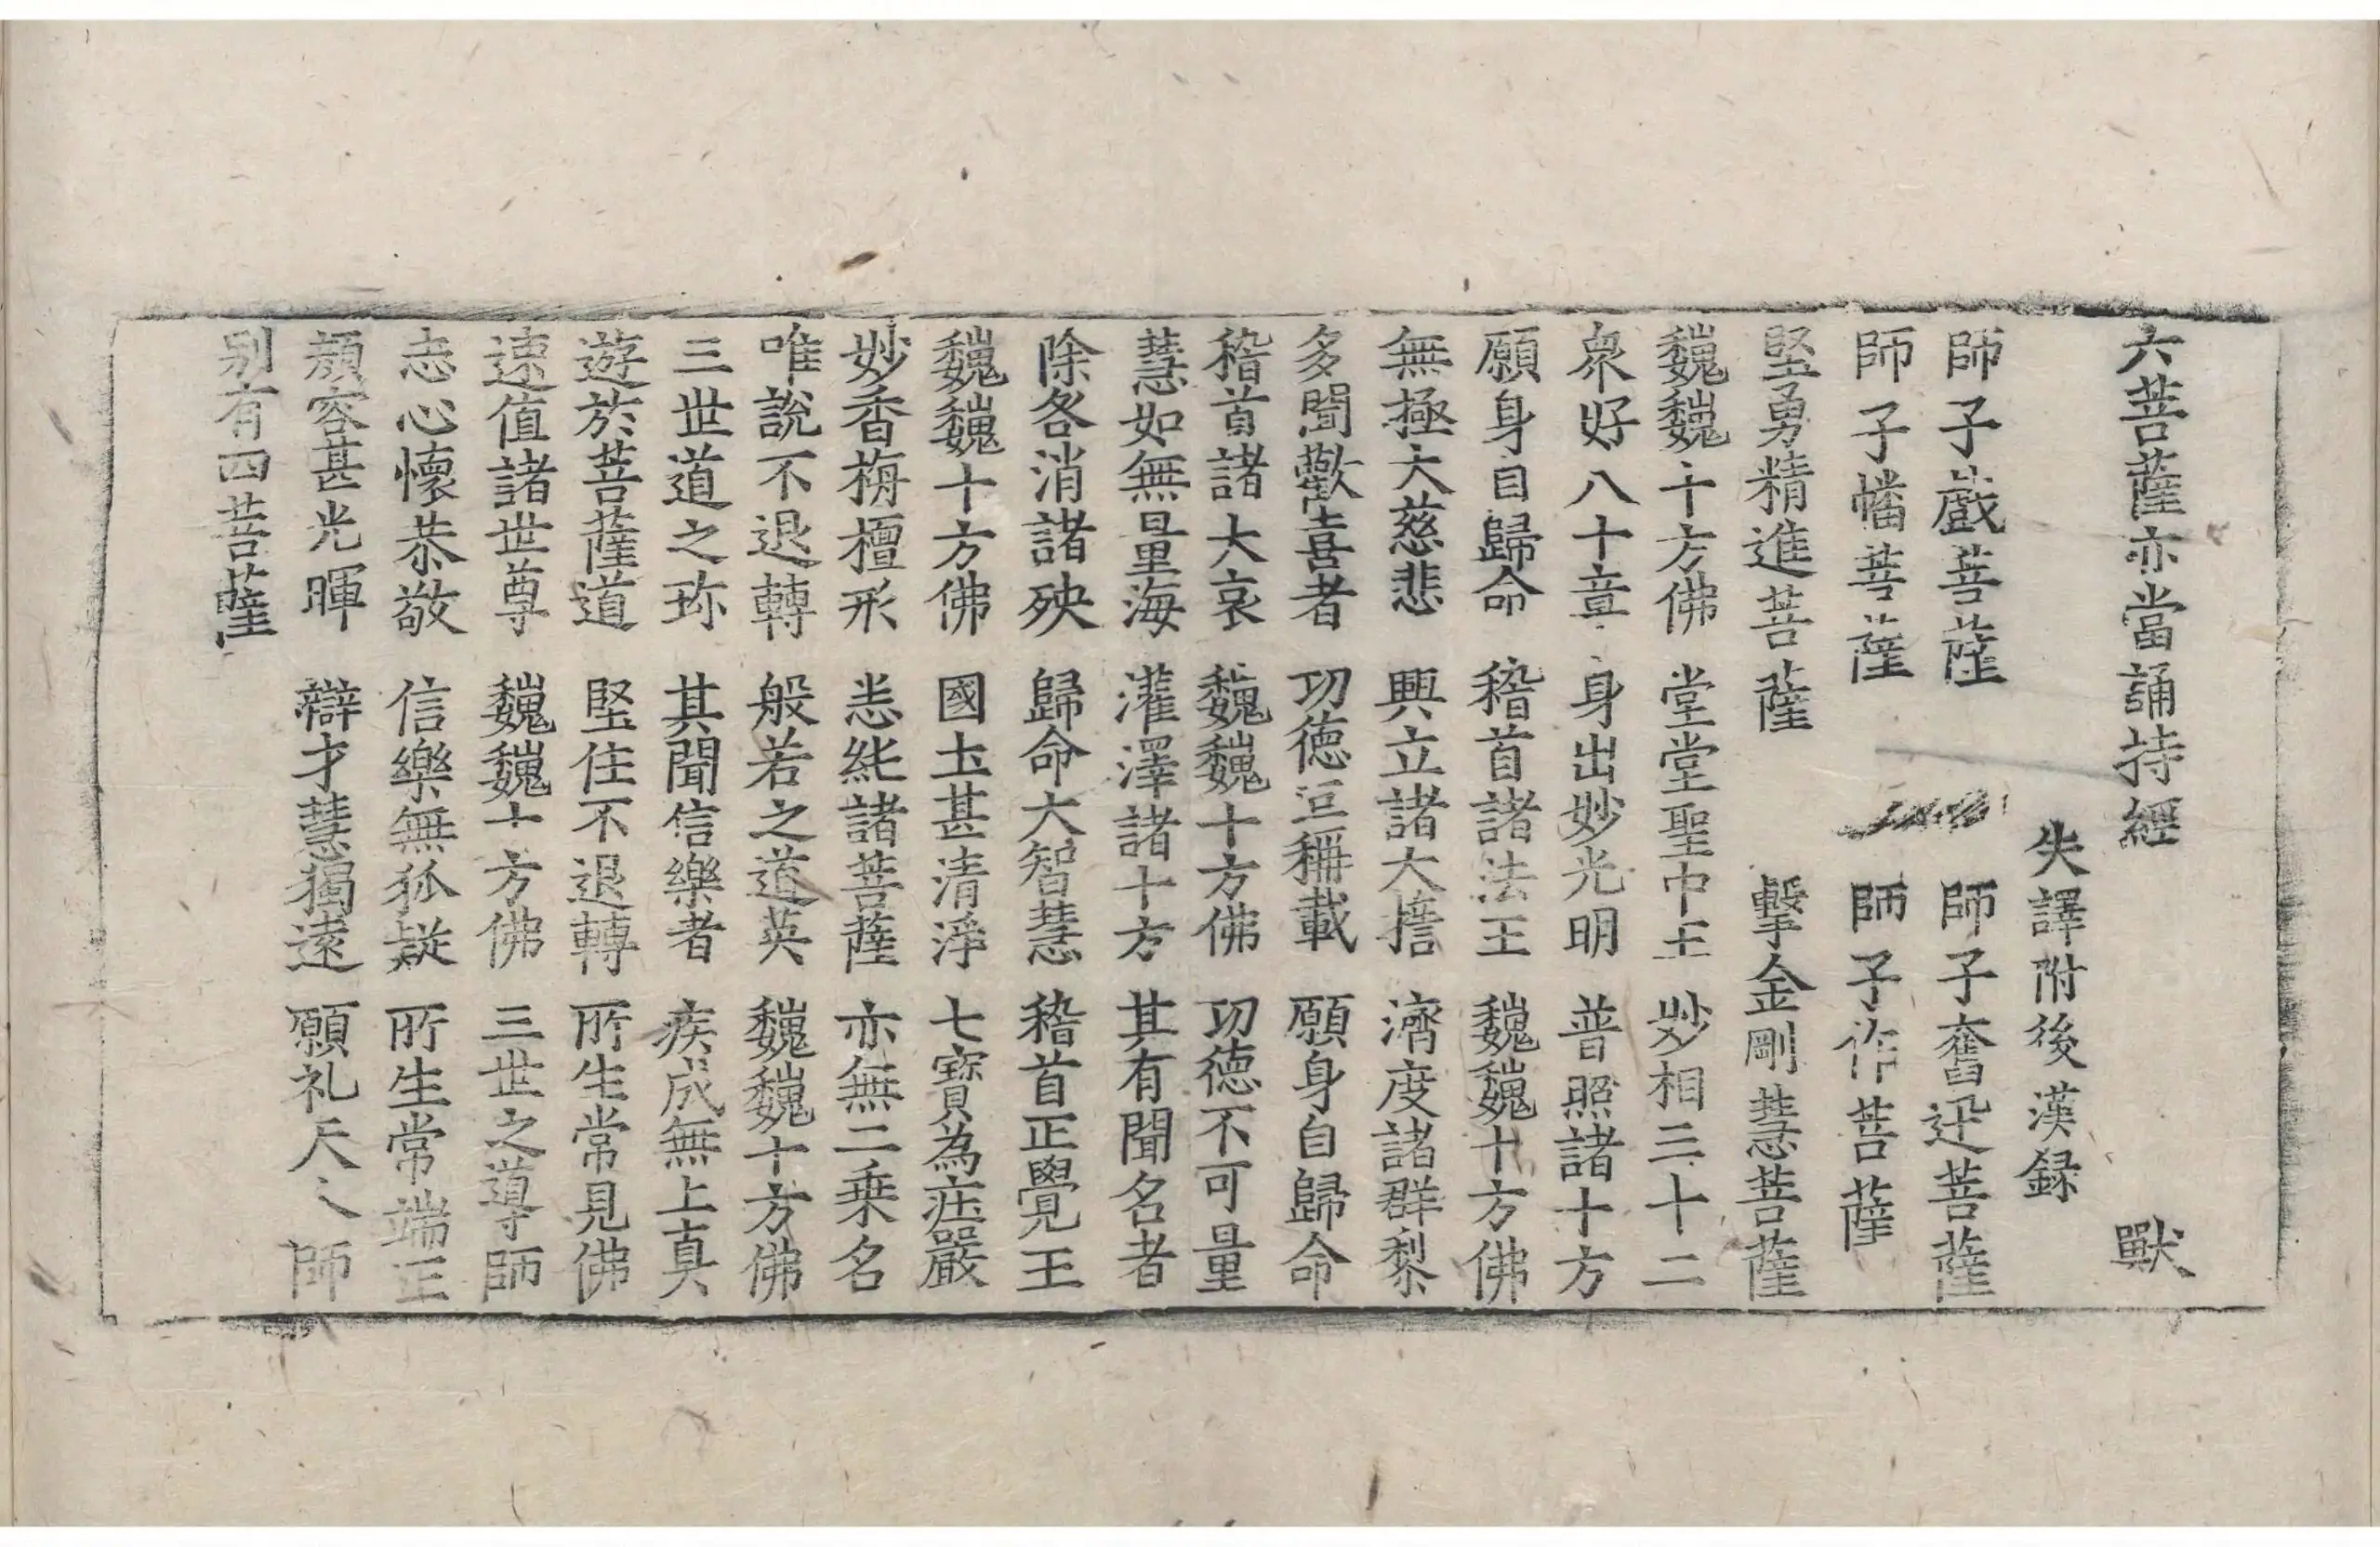 六菩薩亦當誦持經 獸
失譯附後漢録
師子戲菩薩 師子奮迅菩薩
師子幡菩薩 師子作菩薩
堅勇精進菩薩 擊金剛慧菩薩
巍巍十方佛 堂堂聖中王 妙相三十二
衆好八十章 身出妙光明 普照諸十方
願身自歸命 稽首諸法王 巍巍十方佛
無極大慈悲 興立諸大擔 濟度諸群黎
多聞歡喜者 功德亘稱載 願身自歸命
稽首諸大哀 巍巍十方佛 功德不可量
慧如無量海 灌澤諸十方 其有聞名者
除各消諸殃 歸命大智慧 稽首正覺王
巍巍十方佛 國土甚清淨 七寶為莊嚴
妙香栴檀形 恙純諸菩薩 亦無二乗名
唯說不退轉 般若之道英 巍巍十方佛
三世道之珎 其聞信樂者 疾成無上真
遊於菩薩道 堅住不退轉 所生常見佛
速值諸世尊 巍巍十方佛 三世之導師
志心懷恭敬 信樂無狐疑 所生常端正
顏容甚光暉 辯才慧獨遠 願礼天之師
別有四菩薩